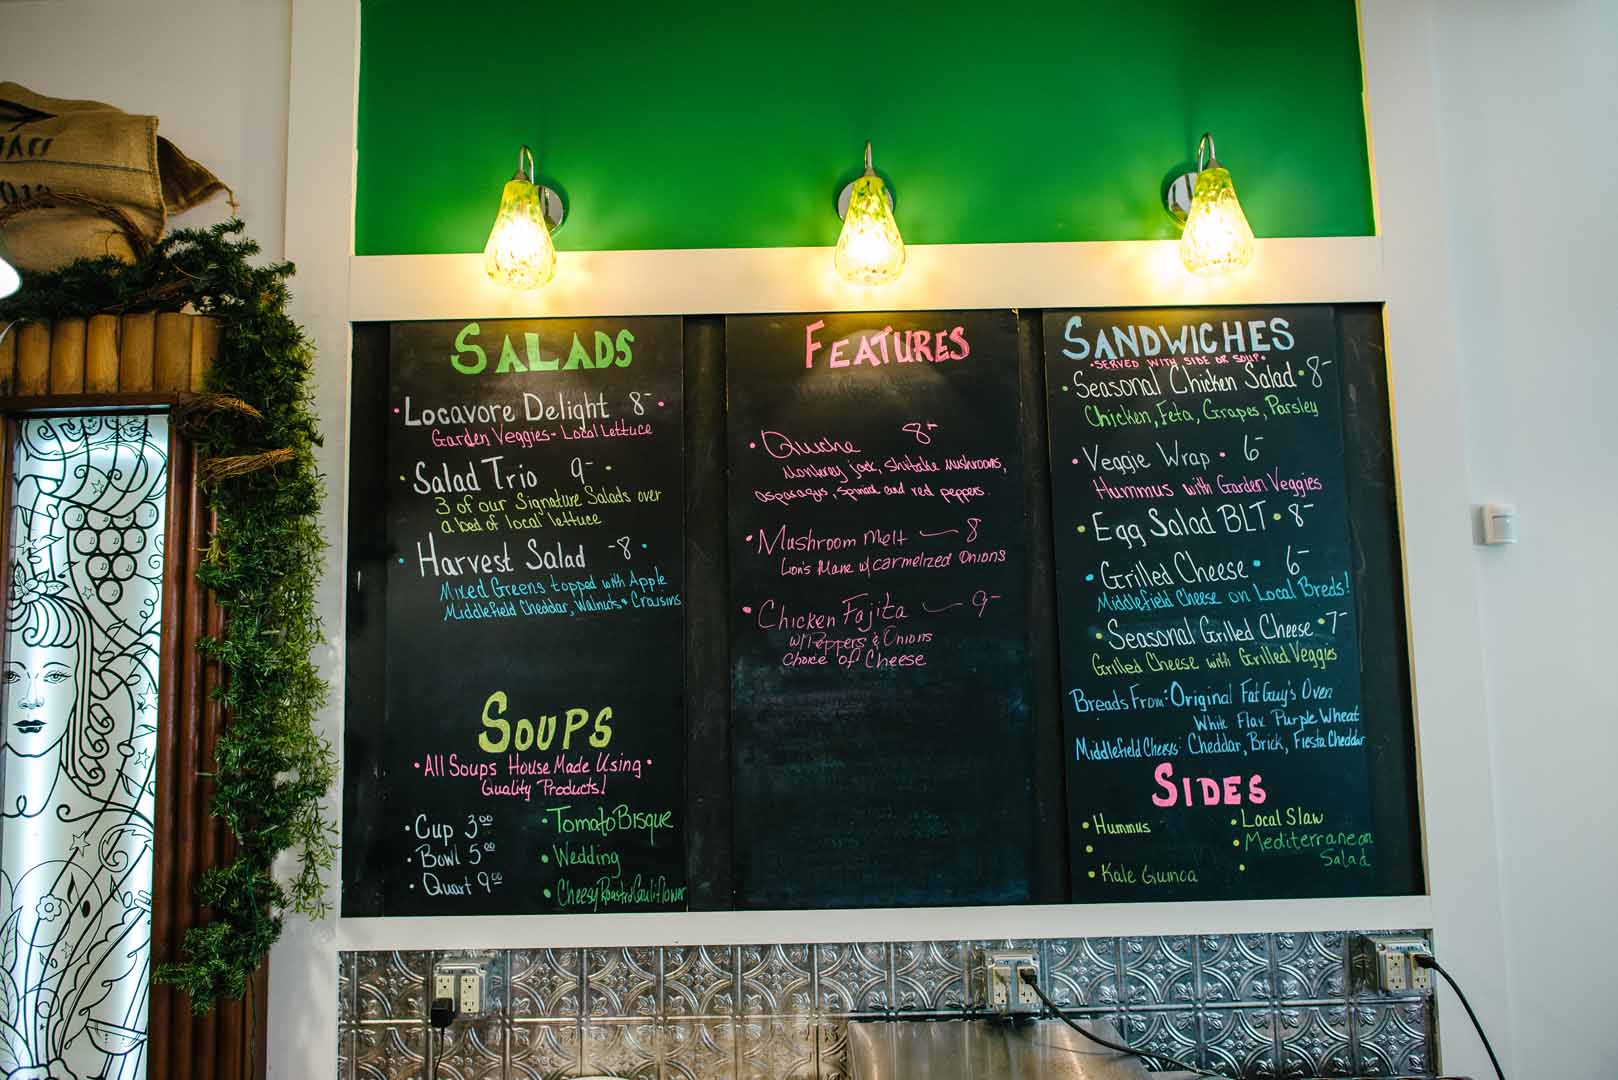 SALADS
• Locavore Delight 8- •
Garden Veggies - Local Lettuce
• Salad Trio 9- •
3 of our Signature Salads over
a bed of local lettuce
• Harvest Salad -8 •
Mixed Greens topped with Apple
Middlefield Cheddar, Walnuts + Craisins
SOUPS
• All Soups House Made Using •
Quality Products!
• Cup 3.00
• Bowl 5.00
• Quart 9.00
• Tomato Bisque
• Wedding
• Cheesy Roasted Cauliflower
FEATURES
• Quiche 8-
jack, Shitake mushrooms,
asparagus, spinach and red peppers.
• Mushroom melt — 8
Lion's Mane w/ carmelized onions
• Chicken Fajita — 9-
w/ Peppers & Onions
choice of Cheese
SANDWICHES
• SERVED WITH SIDE OR SOUP •
• Seasonal Chicken Salad • 8-
Chicken, Feta, Grapes, Parsley
• Veggie Wrap • 6-
Hummus with Garden Veggies
• Egg Salad BLT • 8-
• Grilled Cheese • 6-
Middlefield Cheese on Local Breds!
• Seasonal Grilled Cheese • 7-
Grilled Cheese with Grilled Veggies
Breads From: Original Fat Guy's Oven
White Flax Purple Wheat
Middlefield Cheeses: Cheddar, Brick, Fiesta Cheddar
SIDES
• Hummus
•
• Kale Guinoa
• Local Slaw
• Mediterranean
Salad
•